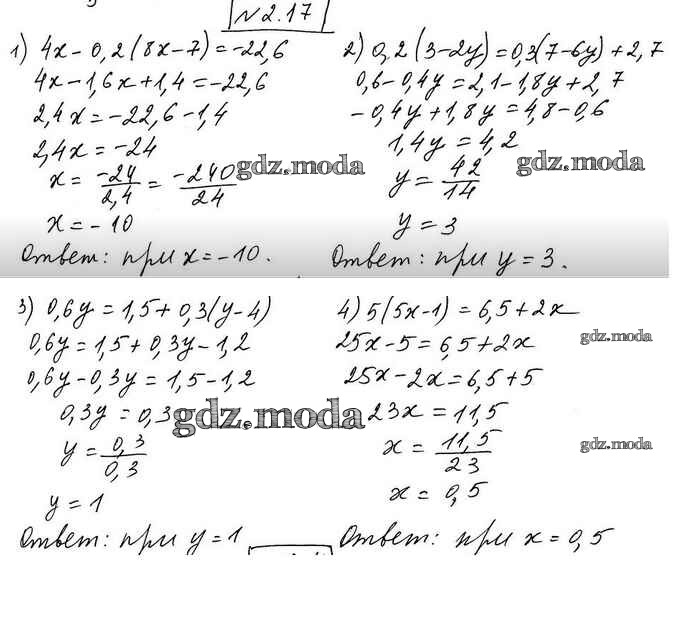 № 2.17
1) 4x - 0,2(8x-7) = -22,6
4x - 1,6x + 1,4 = -22,6
2,4x = -22,6 - 1,4
2,4x = -24
x = -24/2,4 = -240/24
x = -10
Ответ: при x = -10.
2) 0,2(3-2y) = 0,3(7-6y) + 2,7
0,6 - 0,4y = 2,1 - 1,8y + 2,7
-0,4y + 1,8y = 4,8 - 0,6
1,4y = 4,2
y = 42/14
y = 3
Ответ: при y = 3.
gdz.moda
gdz.moda
3) 0,6y = 1,5 + 0,3(y-4)
0,6y = 1,5 + 0,3y - 1,2
0,6y - 0,3y = 1,5 - 1,2
0,3y = 0,3
y = 0,3/0,3
y = 1
Ответ: при y = 1
4) 5(5x-1) = 6,5 + 2x
25x - 5 = 6,5 + 2x
25x - 2x = 6,5 + 5
23x = 11,5
x = 11,5/23
x = 0,5
Ответ: при x = 0,5
gdz.moda
gdz.moda
gdz.moda